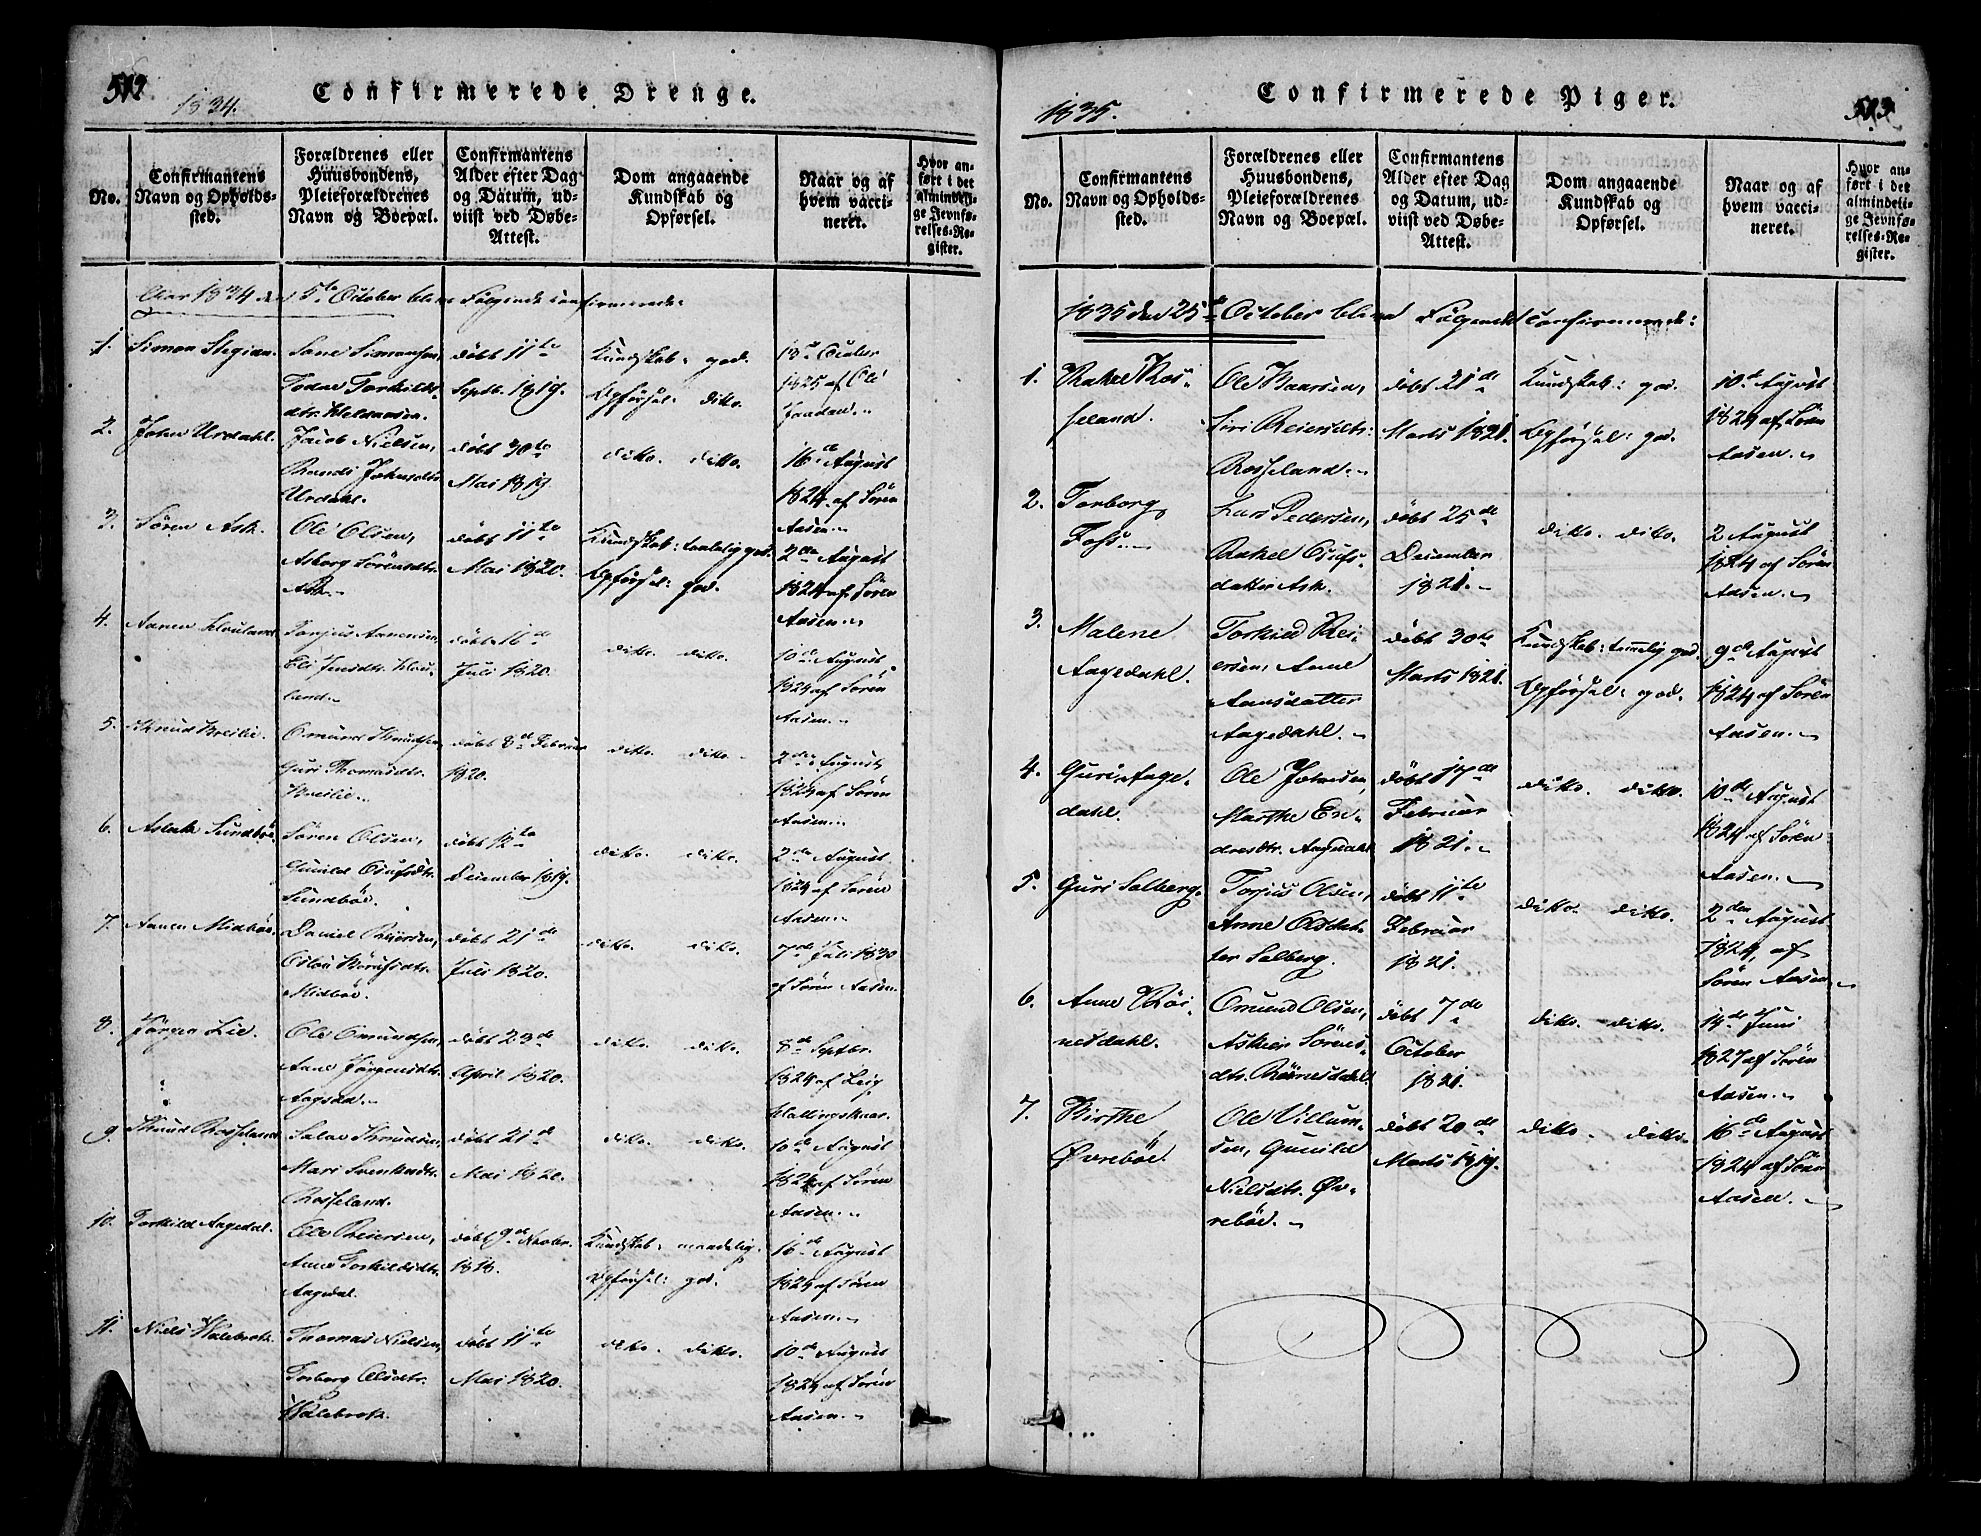 1834.
Confirmerede Drenge.
No.
Confirmantens
Navn og Opholds-
sted.
Forældrenes eller
Huusbondens,
Pleieforældrenes
Navn og Boepæl.
Confirmantens
Alder efter Dag
og Datum, ud-
viist ved Døbe-
Attest.
Dom angaaende
Kundskab og
Opførsel.
Naar og af
hvem vacci-
neret.
Hvor an-
ført i det
almindeli-
ge Jevnfø-
relses-Re-
gister.
Aar 1834 den 5te October bleve Følgende confirmerede:
1.
Simon
Simonsen,
Torkilds-
dtr.
døbt 11te
Septb. 1819.
Kundskab: god.
Opførsel: ditto.
October
1825 af Ole
2.
John Urdahl.
Jacob Nielsen,
Randi Johnsdtr.
Urdahl.
døbt 30te
Mai 1819.
ditto. ditto.
16de August
1824 af Søren
Aasen.
3.
Søren Ask.
Ole Olsen,
Asborg Sørensdtr.
Ask.
døbt 11te
Mai 1820.
Kundskab: temmelig god.
Opførsel: god.
2den August
1824 af Søren
Aasen.
4.
Aanen
Torjus Aanensen,
Eli Jensdtr.
land.
døbt 16de
Juli 1820.
ditto. ditto.
10de August
1824 af Søren
Aasen.
5.
Knud
Omund Knudsen,
Guri Thomasdtr.
døbt 8de Februar
1820.
ditto. ditto.
2den August
1824 af Søren
Aasen.
6.
Aslak Sundbøe.
Søren Olsen,
Gunild Osufsdtr.
Sundbøe.
døbt 12te
December 1819.
ditto. ditto.
2den August
1824 af Søren
Aasen.
7.
Aanen Midbøe.
Daniel Reiersen,
Midbøe.
døbt 21de
Juli 1820.
ditto. ditto.
7de Juli 1830
af Søren Aasen.
8.
Jørgen Lie.
Ole Omundsen,
Anne Jørgensdtr.
døbt 23de
April 1820.
ditto. ditto.
8de Septbr.
1824 af
9.
Knud Rosseland.
Salve Knudsen,
Mari
Rosseland.
døbt 21de
Mai 1820.
ditto. ditto.
10de August
1824 af Søren
Aasen.
10.
Torkild Aagedal.
Ole Reiersen,
Anne Torkildsdtr.
Aagedal.
døbt 9de Novbr.
1818.
Kundskab: maadelig.
Opførsel: god.
16de August
1824 af Søren
Aasen.
11.
Niels Walebrok.
Thomas Nielsen,
Torborg Olsdtr.
Walebrok.
døbt 11te
Mai 1820.
ditto. ditto.
10de August
1824 af Søren
Aasen.
1835.
Confirmerede Piger.
513
No.
Confirmantens
Navn og Opholds-
sted.
Forældrenes eller
Huusbondens,
Pleieforældrenes
Navn og Boepæl.
Confirmantens
Alder efter Dag
og Datum, ud-
viist ved Døbe-
Attest.
Dom angaaende
Kundskab og
Opførsel.
Naar og af
hvem vacci-
neret.
Hvor an-
ført i det
almindeli-
ge Jevnfø-
relses-Re-
gister.
1835 den 25de October bleve Følgende confirmerede:
1.
Rakel Ros-
seland.
Ole Kaarsen,
Siri Reiersdtr.
Rosseland.
døbt 21de
Marts 1821.
Kundskab: god.
Opførsel: god.
10de August
1824 af Søren
Aasen.
2.
Torborg
Foss.
Lars Pedersen,
Rakel Osufs-
datter Ask.
døbt 25de
December
1821.
ditto. ditto.
2 August
1824 af Søren
Aasen.
3.
Malene
Aagedahl.
Torkild Rei-
ersen, Anne
Aansdatter
Aagedahl.
døbt 30te
Marts 1821.
Kundskab: temmelig god.
Opførsel: god.
9de August
1824 af Søren
Aasen.
4.
Guri Aage-
dahl.
Ole Johnsen,
Marthe En-
dresdtr. Aagedahl.
døbt 17de
Februar
1821.
ditto. ditto.
10de August
1824 af Søren
Aasen.
5.
Guri Solberg.
Torjus Olsen,
Anne Olsdat-
ter Solberg.
døbt 11te
Februar
1821.
ditto. ditto.
2den August
1824, af
Søren Aasen.
6.
Anne Røi-
nesdahl.
Omund Olsen,
Sørens-
dtr. Røinesdahl.
døbt 7de
October
1821.
ditto. ditto.
14de Juni
1827 af Søren
Aasen.
7.
Birthe
Øvrebøe.
Ole Villum-
sen, Gunild
Nielsdtr. Øv-
rebøe.
døbt 20de
Marts 1819.
ditto. ditto.
16de August
1824 af Søren
Aasen.